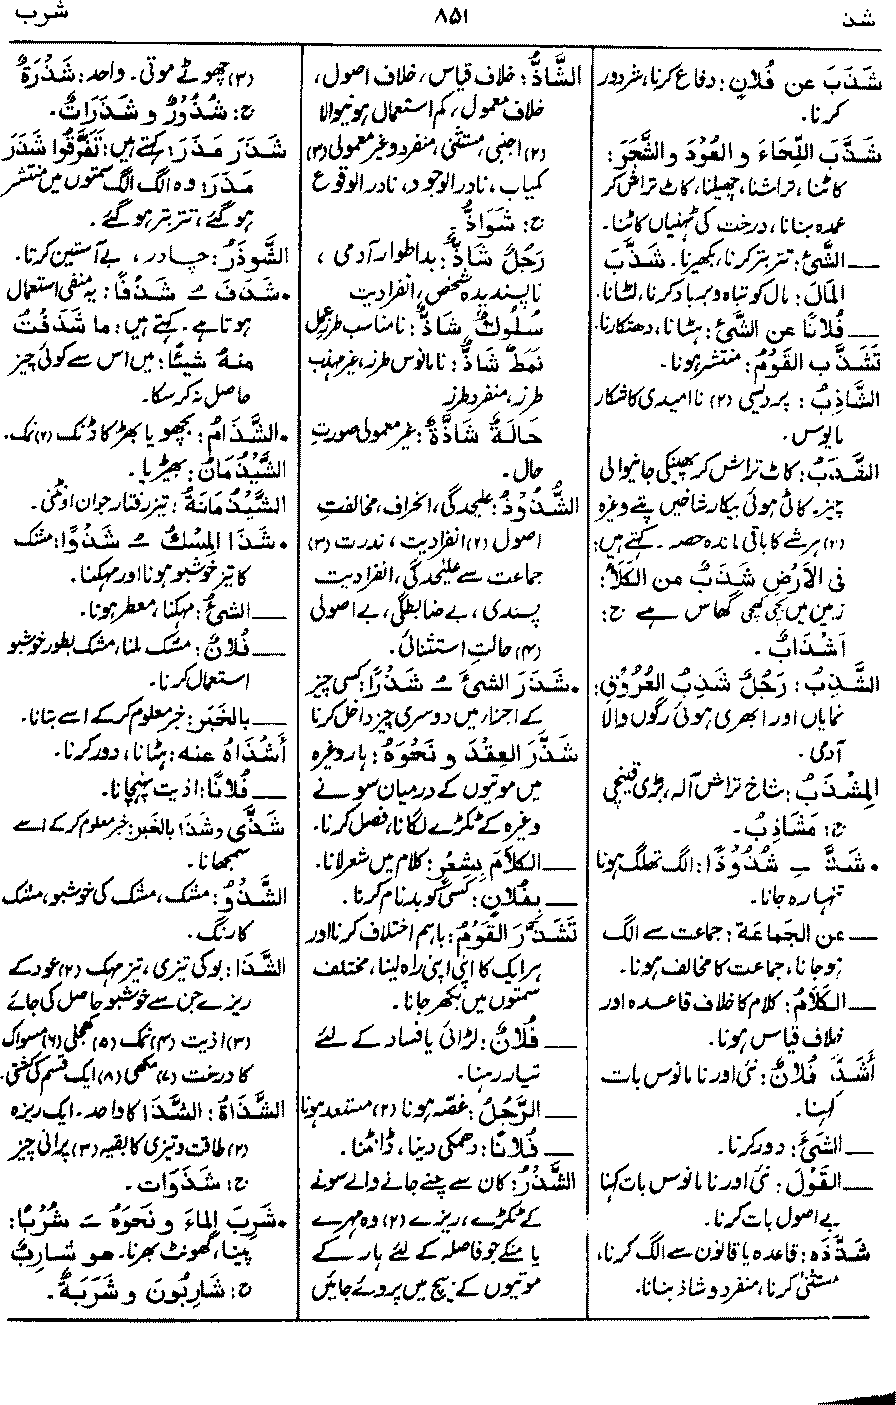 شذ
۸۵۱
شرب
شَذَبَ عن فُلانٍ: دفاع کرنا، ضرور
کرنا۔
شَذَّبَ اللِّحَاءَ و العُودَ والشَّجَرَ:
کاٹنا، تراشنا، چھیلنا، کاٹ تراش کر
عمدہ بنانا، درخت کی ٹہنیاں کاٹنا۔
ــــ الشَّیْءَ: تتر بتر کرنا، بکھیرنا۔ شَذَّبَ
المَالَ: مال کو تباہ و برباد کرنا، لٹانا۔
ــــ فُلَانًا عن الشَّیْءِ: ہٹانا، دھتکارنا۔
تَشَذَّب القَوْمُ: منتشر ہونا۔
الشَّاذِبُ: پردیسی (۲) ناامیدی کا شکار
مایوس۔
الشَّذَبُ: کاٹ تراش کر پھینکی جانیوالی
چیز۔ کاٹی ہوئی بیکار شاخیں پتے وغیرہ
(۲) ہر شے کا باقی ماندہ حصہ ۔ کہتے ہیں:
فی الاَرْضِ شَذَبٌ من الکَلَأِ:
زمین میں بچی کھچی گھاس ہے ج:
اَشْذَابٌ ۔
الشَّذِبُ: رَجُلٌ شَذِبُ العُرُوْقِ:
نمایاں اور ابھری ہوئی رگوں والا
آدمی ۔
المِشْذَبُ: شاخ تراش آلہ، بڑی قینچی
ج: مَشَاذِبُ۔
• شَذَّ ــِـ شُذُوذًا: الگ تھلگ ہونا
تنہا رہ جانا۔
ــــ عن الجَمَاعَة: جماعت سے الگ
ہوجانا، جماعت کا مخالف ہونا۔
ــــ الکَلَامُ: کلام کا خلاف قاعدہ اور
خلاف قیاس ہونا۔
أَشَذَّ فُلَانٌ: نئی اور نامانوس بات
کہنا۔
ــــ الشَّیْءَ: دور کرنا۔
ــــ القَوْلَ: نئی اور نامانوس بات کہنا
بے اصول بات کرنا۔
شَذَّذَه: قاعدہ یا قانون سے الگ کرنا،
مستثنیٰ کرنا، منفرد و شاذ بنانا۔
الشَّاذُّ: خلاف قیاس، خلاف اصول،
خلاف معمول، کم استعمال ہونیوالا
(۲) اجنبی، مستثنیٰ، منفرد وغیر معمولی (۳)
کمیاب، نادر الوجود، نادر الوقوع
ج: شَوَاذُّ۔
رَجُلٌ شَاذٌّ: بداطوار آدمی ،
ناپسندیدہ شخص، انفرادیت
سُلُوكٌ شَاذٌّ: نامناسب طرز عمل
نَمَطٌ شَاذٌّ: نامانوس طرز، غیر مہذب
طرز، منفرد طرز
حَالَةٌ شَاذَّةٌ: غیر معمولی صورتِ
حال۔
الشُّذُوْذُ: علیحدگی، انحراف، مخالفتِ
اصول (۲) انفرادیت ، ندرت (۳)
جماعت سے علیحدگی، انفرادیت
پسندی، بے ضابطگی، بے اصولی
(۴) حالت استثنائی۔
• شَذَرَ الشیْءَ ــُـ شَذْرًا: کسی چیز
کے اجزار میں دوسری چیز داخل کرنا
شَذَّرَ العِقْدَ و نَحْوَهُ: ہار وغیرہ
میں موتیوں کے درمیان سونے
وغیرہ کے ٹکڑے لگانا، فصل کرنا۔
ــــ الکَلَامَ بِشِعْرٍ: کلام میں شعر لانا۔
ــــ بِفُلَانٍ: کسی کو بدنام کرنا۔
تَشَذَّرَ القَوْمُ: باہم اختلاف کرنا اور
ہر ایک کا اپنی اپنی راہ لینا، مختلف
سمتوں میں بکھر جانا۔
ــــ فُلَانٌ: لڑائی یا فساد کے لئے
تیار رہنا۔
ــــ الرَّجُلُ: غصہ ہونا (۲) مستعد ہونا
ــــ فُلَانًا: دھمکی دینا، ڈانٹنا۔
الشَّذْرُ: کان سے چنے جانے والے سونے
کے ٹکڑے، ریزے (۲) وہ مہرے
یا منکے جو فاصلہ کے لئے ہار کے
موتیوں کے بیچ میں پروئے جائیں
(۳) چھوٹے موتی۔ واحد: شَذْرَةٌ
ج: شُذُوْرٌ و شَذَرَاتٌ۔
شَذَرَ مَذَرَ: کہتے ہیں: تَفَرَّقُوا شَذَرَ
مَذَرَ: وہ الگ الگ سمتوں میں منتشر
ہوگئے، تتر بتر ہوگئے ۔
الشَّوذَرُ: چادر ، بے آستین کرتا۔
• شَذَفَ ــُـ شَذْفًا: یہ منفی استعمال
ہوتا ہے۔ کہتے ہیں: ما شَذَفْتُ
منهُ شَیئًا: میں اس سے کوئی چیز
حاصل نہ کر سکا۔
• الشَّذَامُ: بچھو یا بھڑ کا ڈنک (۲) نمک۔
الشَّیْذُمَانُ: بھیڑیا ۔
الشَّیْذُمَانَةُ: تیز رفتار جوان اونٹنی۔
• شَذَا المِسْكُ ــُـ شَذْوًا: مشک
کا تیز خوشبو ہونا اور مہکنا۔
ــــ الشیْءُ: مہکنا، معطر ہونا۔
ــــ فُلَانٌ: مشک ملنا، مشک بطور خوشبو
استعمال کرنا۔
ــــ بالخَبَرِ: خبر معلوم کرکے اسے بتانا۔
أَشْذَاهُ عنه: ہٹانا، دور کرنا۔
ــــ فُلَانًا: اذیت پہنچانا۔
شَذَّی و شَذَا بالخَبَرِ: خبر معلوم کرکے اسے
سمجھانا۔
الشَّذْوُ: مشک، مشک کی خوشبو، مشک
کا رنگ۔
الشَّذَا: بو کی تیزی، تیز مہک (۲) عود کے
ریزے جن سے خوشبو حاصل کی جائے
(۳) اذیت (۴) نمک (۵) کھجلی (۶) مسواک
کا درخت (۷) مکھی (۸) ایک قسم کی کشتی۔
الشَّذَاةُ: الشَّذَا کا واحد۔ ایک ریزہ
(۲) طاقت وتیزی کا بقیہ (۳) پرانی چیز
ج: شَذَوَات ۔
• شَرِبَ المَاءَ و نَحْوَهُ ــَـ شُرْبًا:
پینا، گھونٹ بھرنا۔ هو شَارِبٌ
ج: شَارِبُونَ و شَرَبَةٌ۔